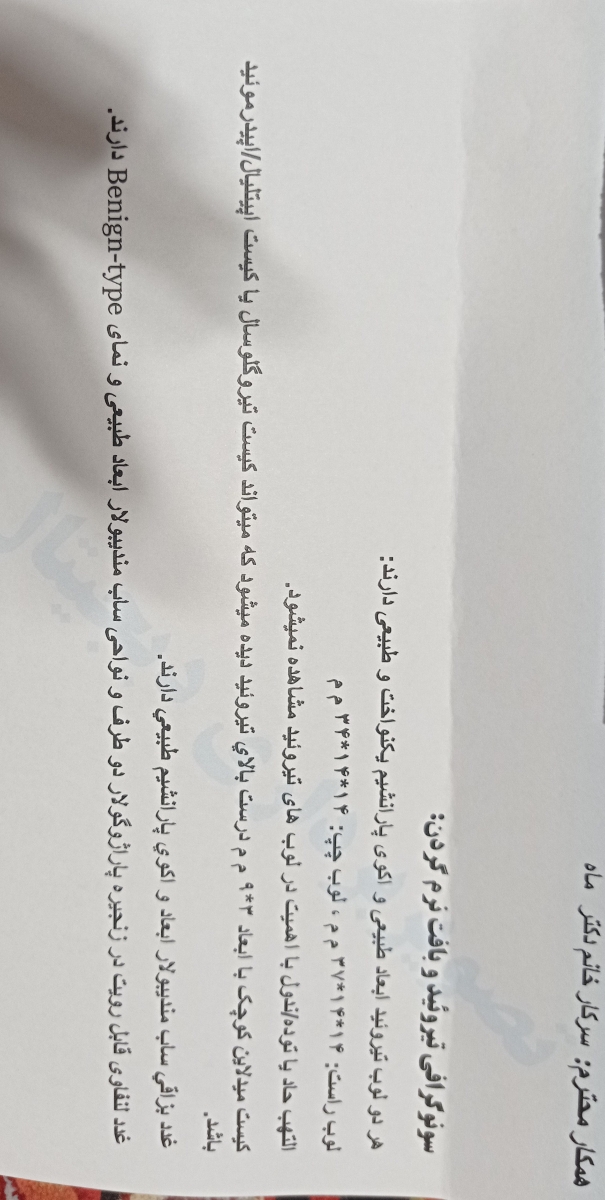 همکار محترم: سرکار خانم دکتر ماه
سونوگرافی تیروئید و بافت نرم گردن:
هر دو لوب تیروئید ابعاد طبیعی و اکوی پارانشیم یکنواخت و طبیعی دارند:
لوب راست: ۱۴*۱۴*۳۷ م م ، لوب چپ: ۱۴*۱۴*۳۴ م م
التهب حاد یا توده/ندول با اهمیت در لوب های تیروئید مشاهده نمیشود.
کیست میدلاین کوچک با ابعاد ۳*۹ م م درست بالای تیروئید دیده میشود که میتواند کیست تیروگلوسال یا کیست اپیتلیال/اپیدرموئید
باشد.
غدد بزاقی ساب مندیبولار ابعاد و اکوی پارانشیم طبیعی دارند.
غدد لنفاوی قابل رویت در زنجیره پاراژوگولار دو طرف و نواحی ساب مندیبولار ابعاد طبیعی و نمای Benign-type دارند.
تصویربرداری دیجیتال